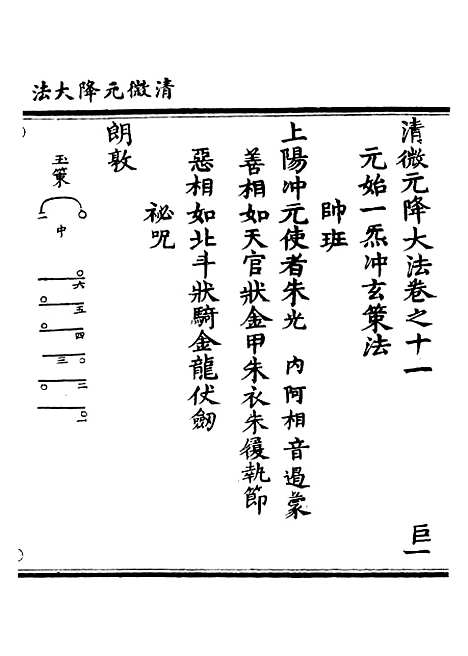 清微元降大法
清微元降大法卷之十一　巨一
元始一炁冲玄策法
帥班
上陽冲元使者朱光　内阿相音過蒙
善相如天官狀金甲朱衣朱履執節
惡相如北斗狀騎金龍伏劒
祕咒
朗敦
玉策
中
六
五
四
三
二
一